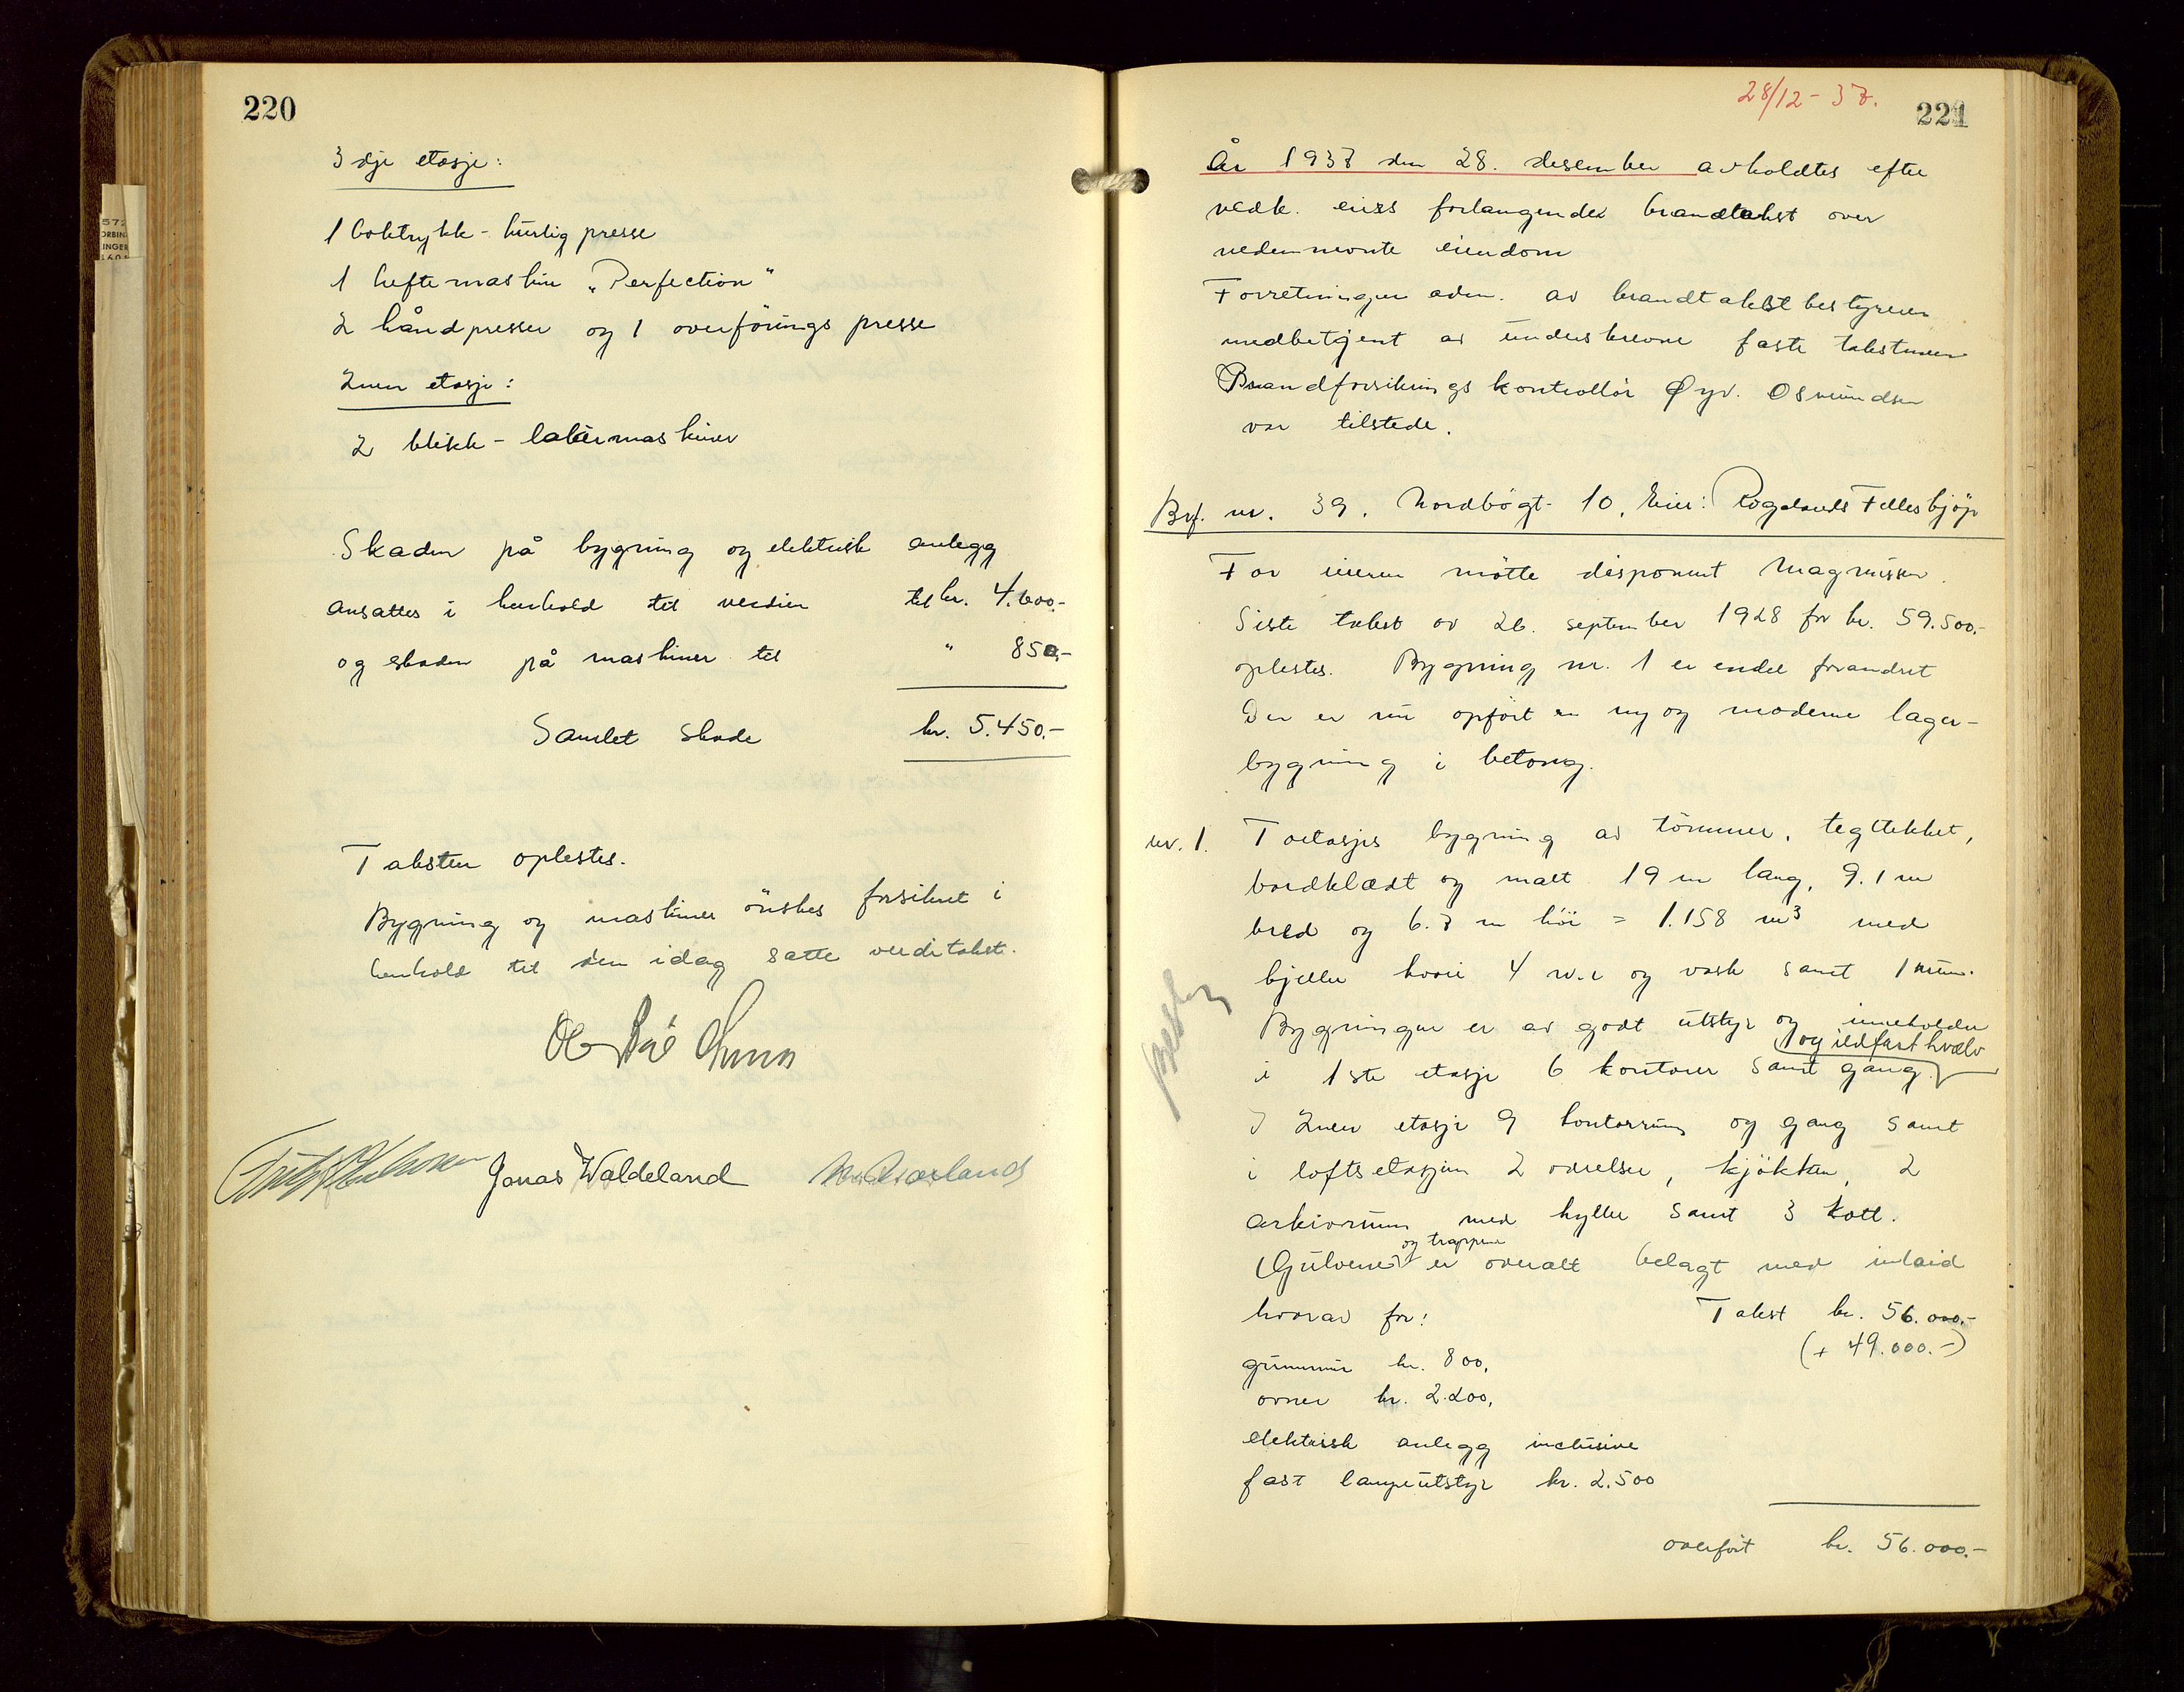 220
3dje etasje:
1 boktrykk-hurtigpresse
1 heftemaskin „Perfection"
2 håndpresser og 1 overførings presse
2nen etasje:
2 blikk-lakérmaskiner
Skaden på bygning og elektrisk anlegg
ansattes i henhold til verdien til kr. 4.600.-
og skaden på maskiner til " 850.-
Samlet skade kr. 5.450.-
Taksten oplestes.
Bygning og maskiner ønskes forsikret i
henhold til den idag satte verditakst.
Jonas Waldeland
28/12-37.
221
År 1937 den 28. desember avholdtes efter
vedk. eiers forlangende brandtakst over
nedennevnte eiendom
Forretningen adm. av brandtakstbestyreren
medbetjent av underskrevne faste takstmenn
Brandforsikringskontrollør Øyv. Osmundsen
var tilstede.
Brf. nr. 39. Nordbøgt. 10. Eier: Rogalands Felleskjøp
For eieren møtte disponent Magnussen.
Siste takst av 26. september 1928 for kr. 59.500.-
oplestes. Bygning nr. 1 er endel forandret
Der er nu opført en ny og moderne lager-
bygning i betong.
nr. 1. Toetasjes bygning av tømmer, tegltekket,
bordklædt og malt 19 m lang, 9.1 m
bred og 6.7 m høi = 1.158 m³ med
kjeller hvori 4 w.c og vask samt 1 rum.
Bygningen er av godt utstyr og inneholder
og ildfast hvelv
i 1ste etasje 6 kontorer samt gang
I 2nen etasje 9 kontorrum og gang samt
i loftsetasjen 2 værelser, kjøkken, 2
arkivrum med hyller samt 3 kott.
og trappene
Gulvene er overalt belagt med inlaid
hvorav for: Takst kr. 56.000.-
(+ 49.000.-)
grunnmur kr. 800,
ovner kr. 2.200,
elektrisk anlegg inclusive
fast lampeutstyr kr. 2.500
overført kr. 56.000.-